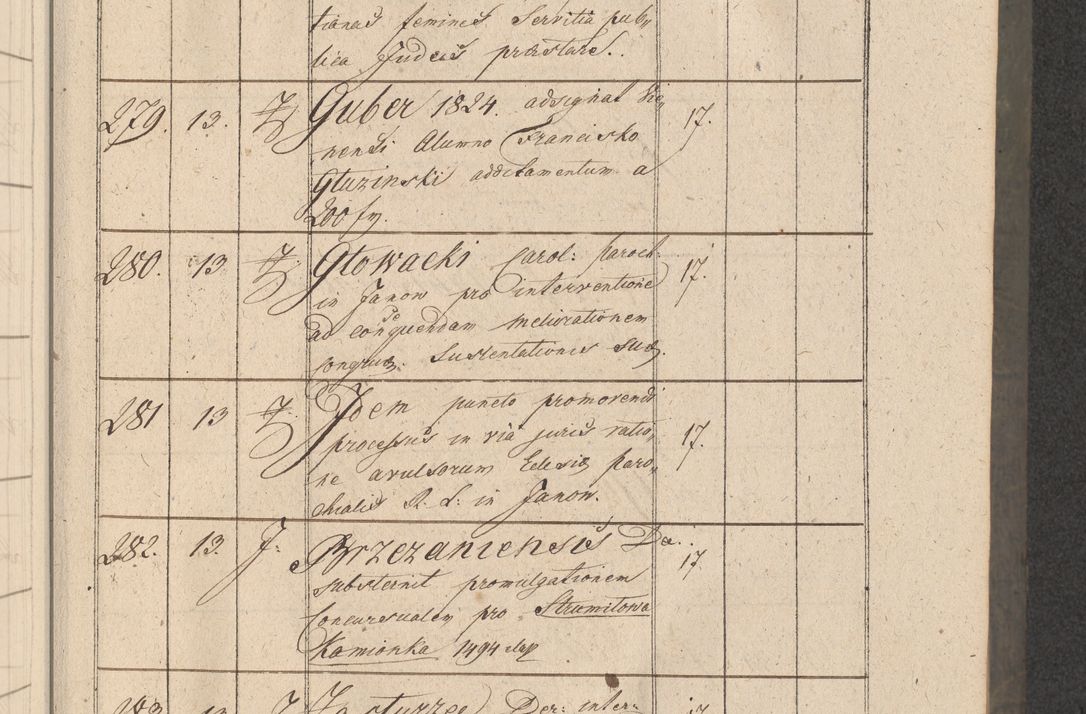 tianas feminis servitia pub,,
lica Judeis præstare.
279. 13. Guber 1824. adsignat Vie, 17.
nensi Alumno Francisko
Gluzinski additamentum a
200 fr.
280. 13 Głowacki Carol: Paroch: 17.
in Janow pro interventione
ad consequendam meliorationem
congruæ sustentationis suæ.
281 13 Idem puncto promovendi 17.
processus in via juris ratio,,
ne avulsorum Eclesiæ paro,,
chialis R. L. in Janow.
282. 13. J: Brzezaniensis De. 17
substernit promulgationem
Concursualem pro Strumilowa
Kamionka 1494
283 13 Der: inter:
17